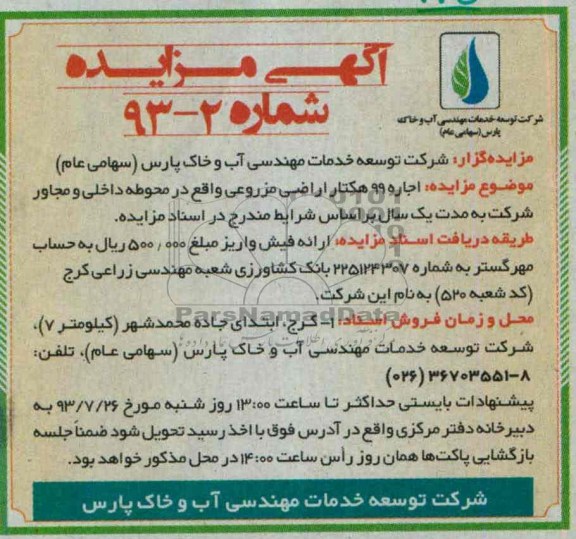 آگهی مزایده
شماره ۲-۹۳
شرکت توسعه خدمات مهندسی آب و خاک
پارس (سهامی عام)
مزایده‌گزار: شرکت توسعه خدمات مهندسی آب و خاک پارس (سهامی عام)
موضوع مزایده: اجاره ۹۹ هکتار اراضی مزروعی واقع در محوطه داخلی و مجاور
شرکت به مدت یک سال بر اساس شرایط مندرج در اسناد مزایده.
طریقه دریافت اسناد مزایده: ارائه فیش واریز مبلغ ۵۰۰/۰۰۰ ریال به حساب
مهرگستر به شماره ۲۲۵۱۲۴۳۰۷ بانک کشاورزی شعبه مهندسی زراعی کرج
(کد شعبه ۵۲۰) به نام این شرکت.
ParsNamadData
محل و زمان فروش اسناد: ۱- کرج، ابتدای جاده محمدشهر (کیلومتر ۷)،
شرکت توسعه خدمات مهندسی آب و خاک پارس (سهامی عام)، تلفن:
۸-۳۶۷۰۳۵۵۱ (۰۲۶)
پیشنهادات بایستی حداکثر تا ساعت ۱۳:۰۰ روز شنبه مورخ ۹۳/۷/۲۶ به
دبیرخانه دفتر مرکزی واقع در آدرس فوق با اخذ رسید تحویل شود ضمناً جلسه
بازگشایی پاکت‌ها همان روز رأس ساعت ۱۴:۰۰ در محل مذکور خواهد بود.
شرکت توسعه خدمات مهندسی آب و خاک پارس